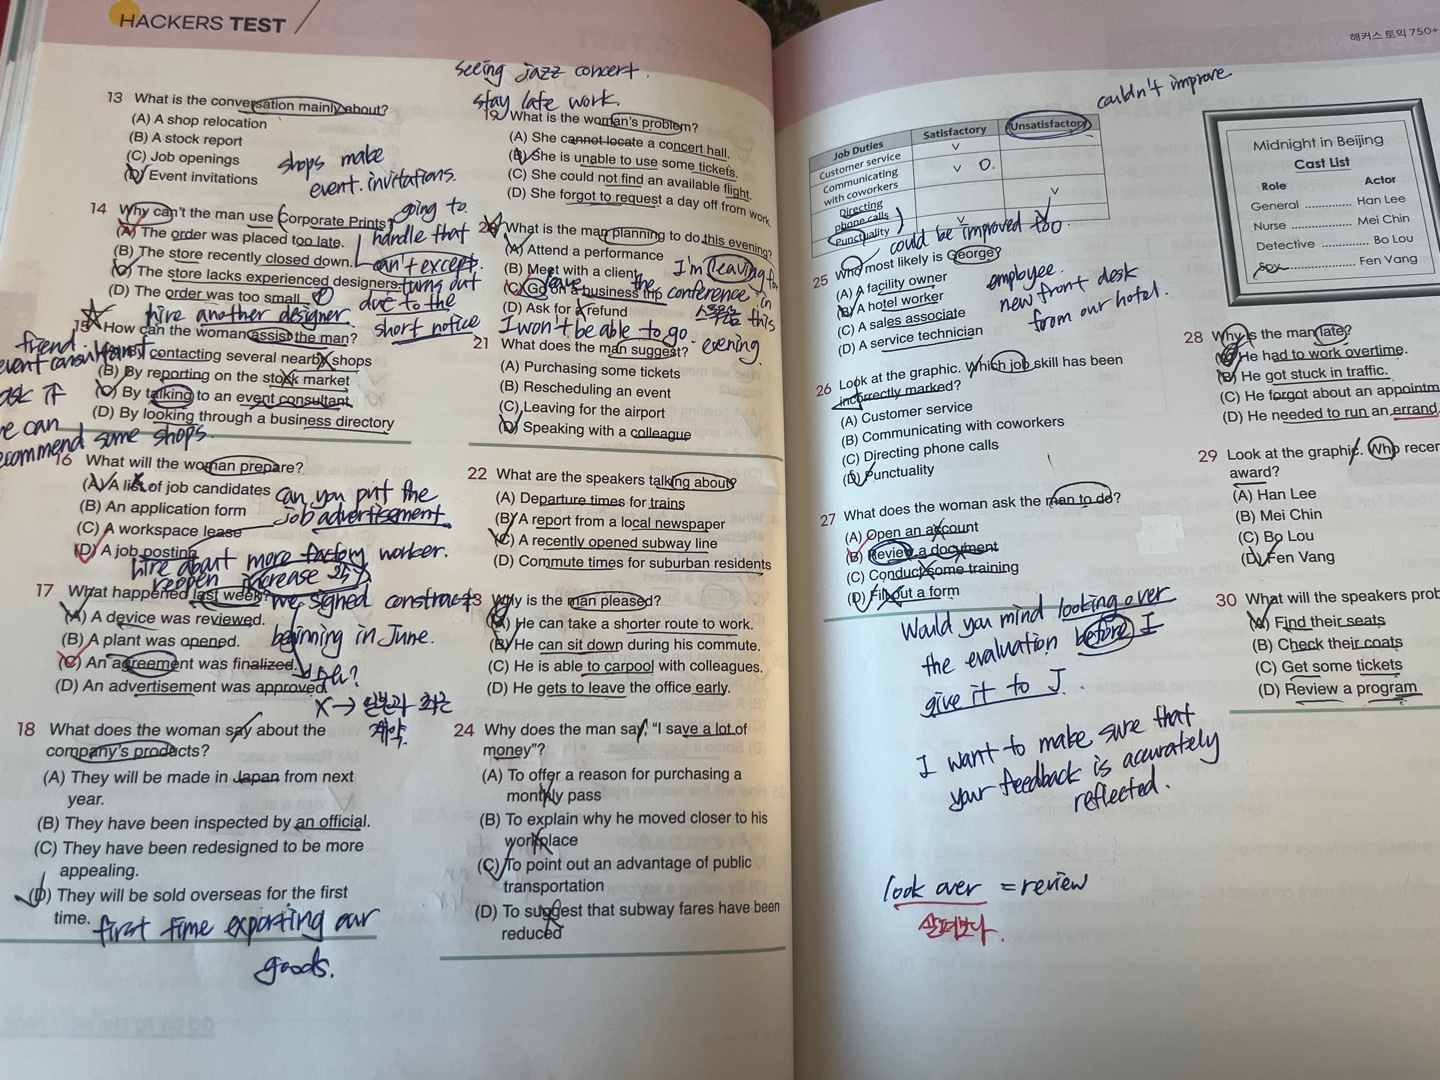 HACKERS TEST
seeing jazz concert.
stay late work.
13 What is the conversation mainly about?
(A) A shop relocation
(B) A stock report
(C) Job openings
(D) Event invitations
shops make
event. invitations.
14 Why can't the man use Corporate Prints?
(A) The order was placed too late.
(B) The store recently closed down.
(C) The store lacks experienced designers.
(D) The order was too small.
going to
handle that
can't except.
turns out
due to the
short notice
hire another designer.
15 How can the woman assist the man?
(A) By contacting several nearby shops
(B) By reporting on the stock market
(C) By talking to an event consultant
(D) By looking through a business directory
friend.
event consultant
ask if
he can
recommend some shops.
16 What will the woman prepare?
(A) A list of job candidates
(B) An application form
(C) A workspace lease
(D) A job posting
can you put the
job advertisement
hire about more factory worker.
reopen increase
17 What happened last week?
(A) A device was reviewed.
(B) A plant was opened.
(C) An agreement was finalized.
(D) An advertisement was approved.
we signed
beginning in June.
X →
계약.
18 What does the woman say about the
company's products?
(A) They will be made in Japan from next
year.
(B) They have been inspected by an official.
(C) They have been redesigned to be more
appealing.
(D) They will be sold overseas for the first
time.
first time exporting our
goods.
19 What is the woman's problem?
(A) She cannot locate a concert hall.
(B) She is unable to use some tickets.
(C) She could not find an available flight.
(D) She forgot to request a day off from work.
20 What is the man planning to do this evening?
(A) Attend a performance
(B) Meet with a client
(C) Go on a business trip
(D) Ask for a refund
I'm leaving for
leave the conference in
this
I won't be able to go evening.
21 What does the man suggest?
(A) Purchasing some tickets
(B) Rescheduling an event
(C) Leaving for the airport
(D) Speaking with a colleague
22 What are the speakers talking about?
(A) Departure times for trains
(B) A report from a local newspaper
(C) A recently opened subway line
(D) Commute times for suburban residents
23 Why is the man pleased?
(A) He can take a shorter route to work.
(B) He can sit down during his commute.
(C) He is able to carpool with colleagues.
(D) He gets to leave the office early.
24 Why does the man say, "I save a lot of
money"?
(A) To offer a reason for purchasing a
monthly pass
(B) To explain why he moved closer to his
workplace
(C) To point out an advantage of public
transportation
(D) To suggest that subway fares have been
reduced
해커스 토익 750+
couldn't improve
Job Duties Satisfactory Unsatisfactory
Customer service v
Communicating
with coworkers v O.
Directing
phone calls v
Punctuality v
could be improved too
25 Who most likely is George?
(A) A facility owner
(B) A hotel worker
(C) A sales associate
(D) A service technician
employee.
new front desk
from our hotel.
26 Look at the graphic. Which job skill has been
incorrectly marked?
(A) Customer service
(B) Communicating with coworkers
(C) Directing phone calls
(D) Punctuality
27 What does the woman ask the man to do?
(A) Open an account
(B) Review a document
(C) Conduct some training
(D) Fill out a form
Would you mind looking over
the evaluation before I
give it to J.
I want to make sure that
your feedback is accurately
reflected.
look over = review
살펴보다.
Midnight in Beijing
Cast List
Role Actor
General ............ Han Lee
Nurse ............ Mei Chin
Detective ............ Bo Lou
Spy ............ Fen Vang
28 Why is the man late?
(A) He had to work overtime.
(B) He got stuck in traffic.
(C) He forgot about an appointm
(D) He needed to run an errand.
29 Look at the graphic. Who recen
award?
(A) Han Lee
(B) Mei Chin
(C) Bo Lou
(D) Fen Vang
30 What will the speakers prob
(A) Find their seats
(B) Check their coats
(C) Get some tickets
(D) Review a program